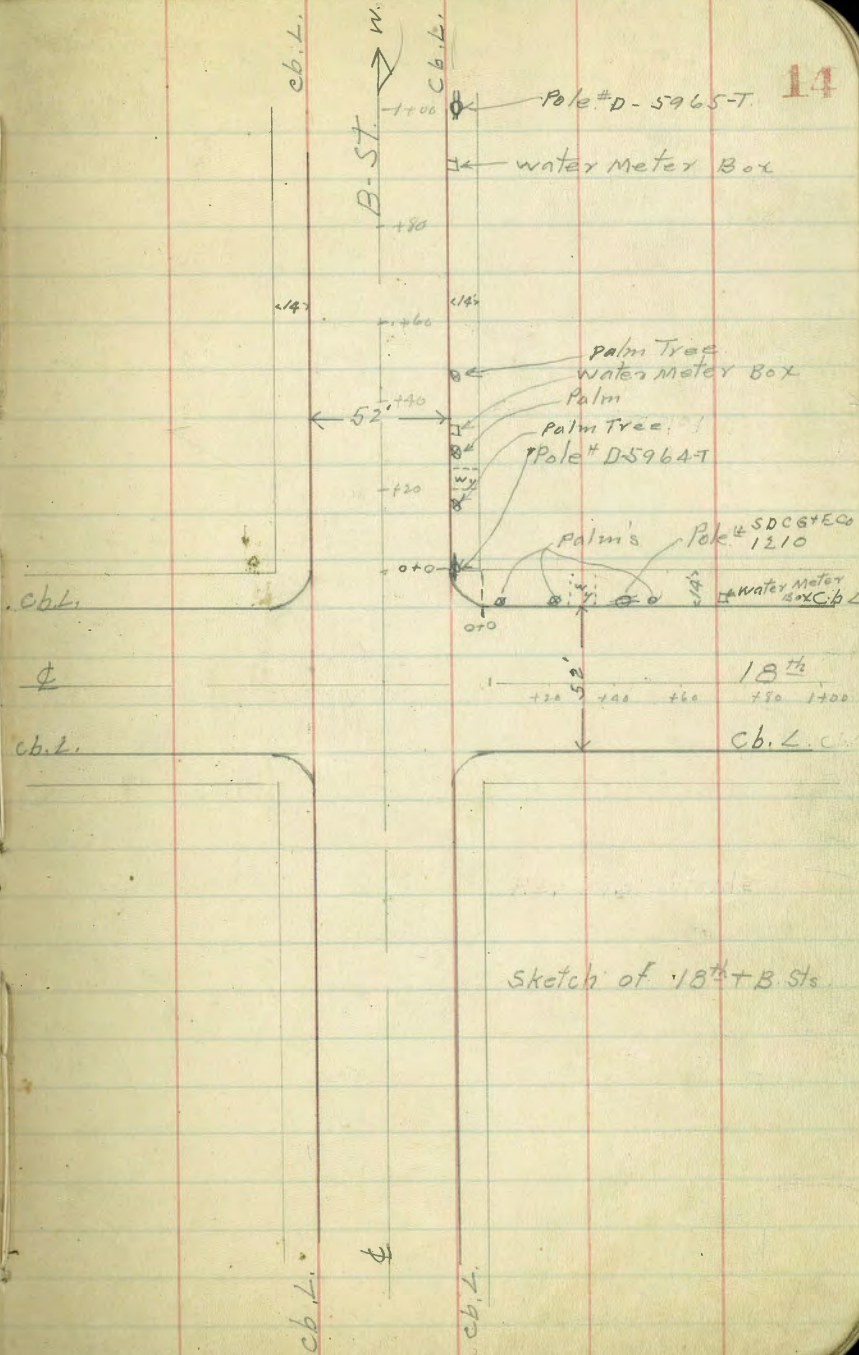 14
cb.L.
W.
Cb.L.
B-St.
1+00
Pole #D-5965-T.
water Meter Box
+80
14'
14'
+60
Palm Tree
Water Meter Box
+40
Palm
52'
Palm Tree
Pole # D-5964-T
wy
+20
Palm's
Pole # SDCG+ECo
1210
0+0
wy
14'
Water Meter
Box Cb L
Cb.L.
0+0
℄
52'
18th
+20 +40 +60 +80 1+00
cb.L.
Cb.L.
Sketch of 18th + B Sts
℄
cb.L.
cb.L.